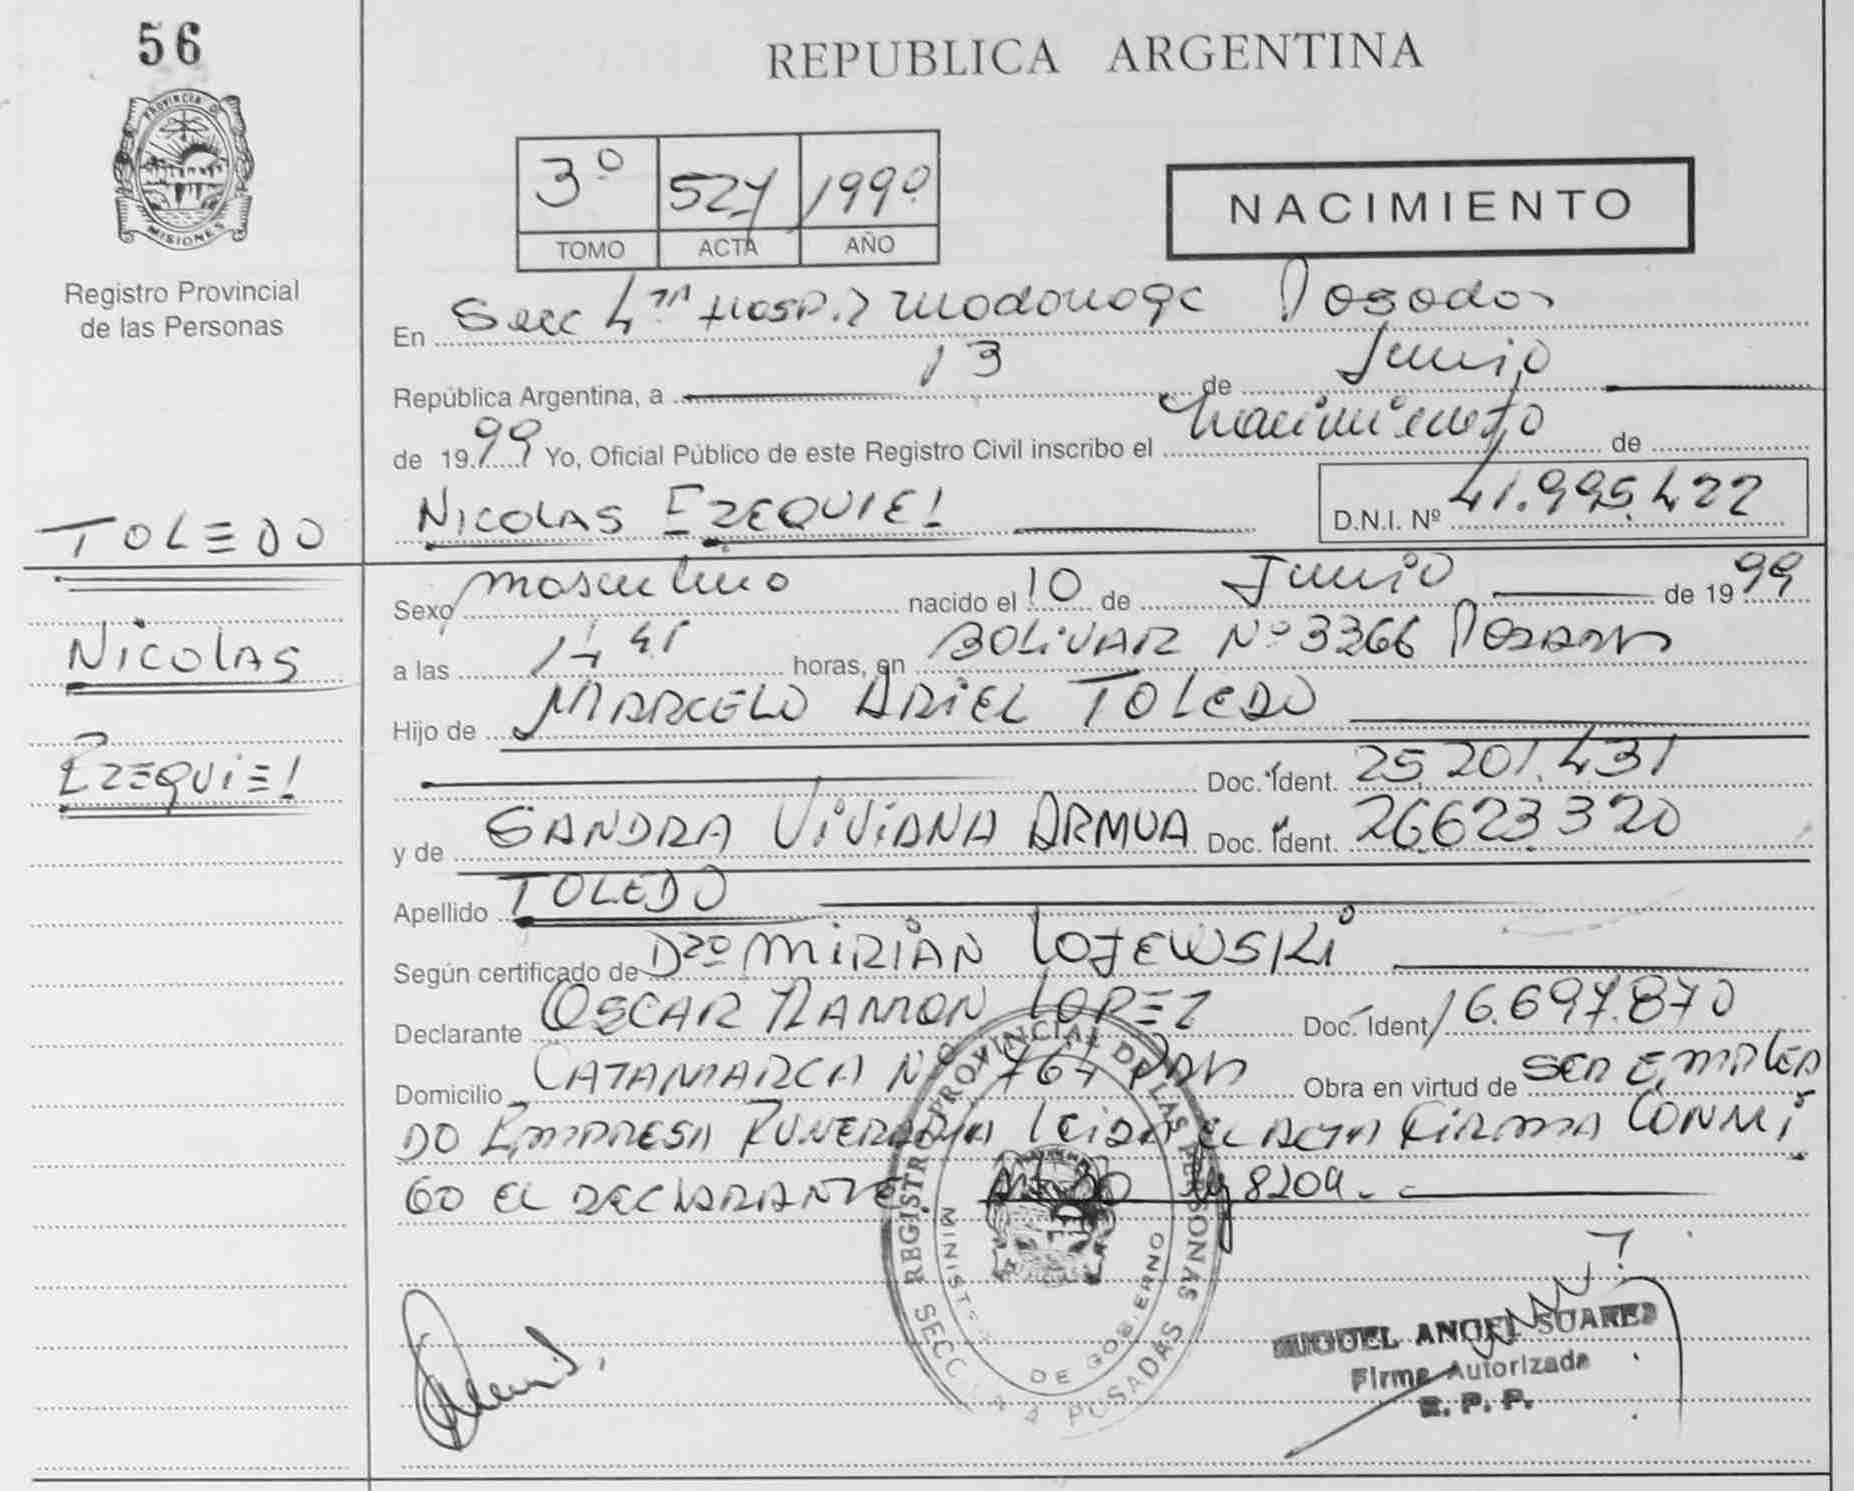 56
REPUBLICA ARGENTINA
PROVINCIA DE
MISIONES
Registro Provincial
de las Personas
3º 527 1999
TOMO ACTA AÑO
NACIMIENTO
En Secc 4ta Hosp. R Madariaga Posadas
República Argentina, a 13 de Junio
de 1999 Yo, Oficial Público de este Registro Civil inscribo el nacimiento de
NICOLAS EZEQUIEL D.N.I. Nº 41.995.422
TOLEDO
NICOLAS
EZEQUIEL
Sexo masculino nacido el 10 de Junio de 1999
a las horas, en BOLIVAR Nº 3366 Posadas
Hijo de MARCELO ARIEL TOLEDO
Doc. Ident. 25.201.431
y de SANDRA VIVIANA ARMUA Doc. Ident. 26.623.320
Apellido TOLEDO
Según certificado de Dra MIRIAN LOJEWSKI
Declarante OSCAR RAMON LOPEZ Doc. Ident. 16.697.870
Domicilio CATAMARCA Nº 1764 Obra en virtud de SER EMPLEA
DO EMPRESA FUNERARIA LEIDA EL ACTA FIRMA CONMI
GO EL DECLARANTE 8209
REGISTRO PROVINCIAL DE LAS PERSONAS
MINISTERIO DE GOBIERNO
SECC 4ª POSADAS
MIGUEL ANGEL SUAREZ
Firma Autorizada
R. P. P.